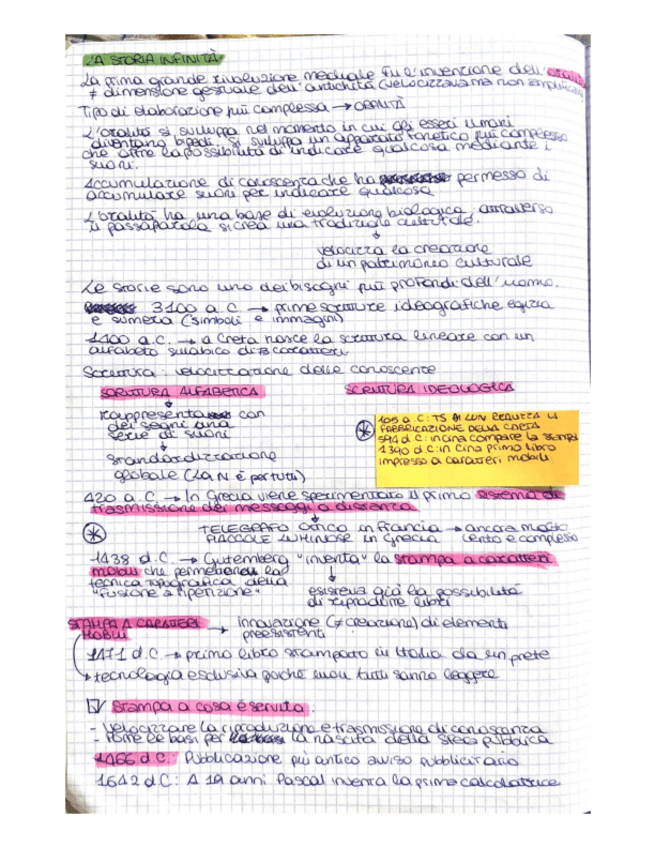 LA STORIA INFINITÀ
La prima grande rivoluzione mediale fu l'invenzione dell'
≠ dimensione gestuale dell'antichità (velocizzava ma non
Tipo di elaborazione più complessa →
L'oralità si sviluppa nel momento in cui gli esseri umani
diventano bipedi. Si sviluppa un apparato fonetico più complesso
che offre la possibilità di indicare qualcosa mediante i
suoni.
Accumulazione di conoscenza che ha permesso di
accumulare suoni per indicare qualcosa
L'oralità ha una base di evoluzione biologica: attraverso
il passaparola si crea una tradizione culturale.
velocizza la creazione
di un patrimonio culturale
Le storie sono uno dei bisogni più profondi dell'uomo.
3100 a.C → prime scritture ideografiche egizia
e sumera (simboli e immagini)
1400 a.C. → a Creta nasce la scrittura lineare con un
alfabeto sillabico di caratteri
Scrittura: velocizzazione delle conoscenze
SCRITTURA ALFABETICA
SCRITTURA IDEOLOGICA
rappresenta con
dei segni una
serie di suoni
standardizzazione
globale (la N è per tutti)
105 a.C: TS LUN REALIZZA LA
FABBRICAZIONE DELLA CARTA
594 d.C: in Cina compare la stampa
1390 d.C: in Cina primo libro
impresso a caratteri mobili
420 a.C. → In Grecia viene sperimentato il primo sistema di
trasmissione dei messaggi a distanza
TELEGRAFO OTTICO in Francia → ancora molto
FIACCOLE LUMINOSE in Grecia lento e complesso
1438 d.C. → Gutemberg "inventa" la stampa a caratteri
mobili che la
tecnica tipografica della
"fusione a ripetizione"
esisteva già la possibilità
di riprodurre libri
STAMPA A CARATTERI
MOBILI → innovazione (≠ creazione) di elementi
preesistenti
1471 d.C → primo libro stampato in Italia da un prete
tecnologia esclusiva poiché non tutti sanno leggere
Stampa a cosa è servita:
- Velocizzare la riproduzione e trasmissione di conoscenza
- Porre le basi per la nascita della sfera pubblica
1466 d.C: Pubblicazione più antico avviso pubblicitario
1642 d.C: A 19 anni Pascal inventa la prima calcolatrice